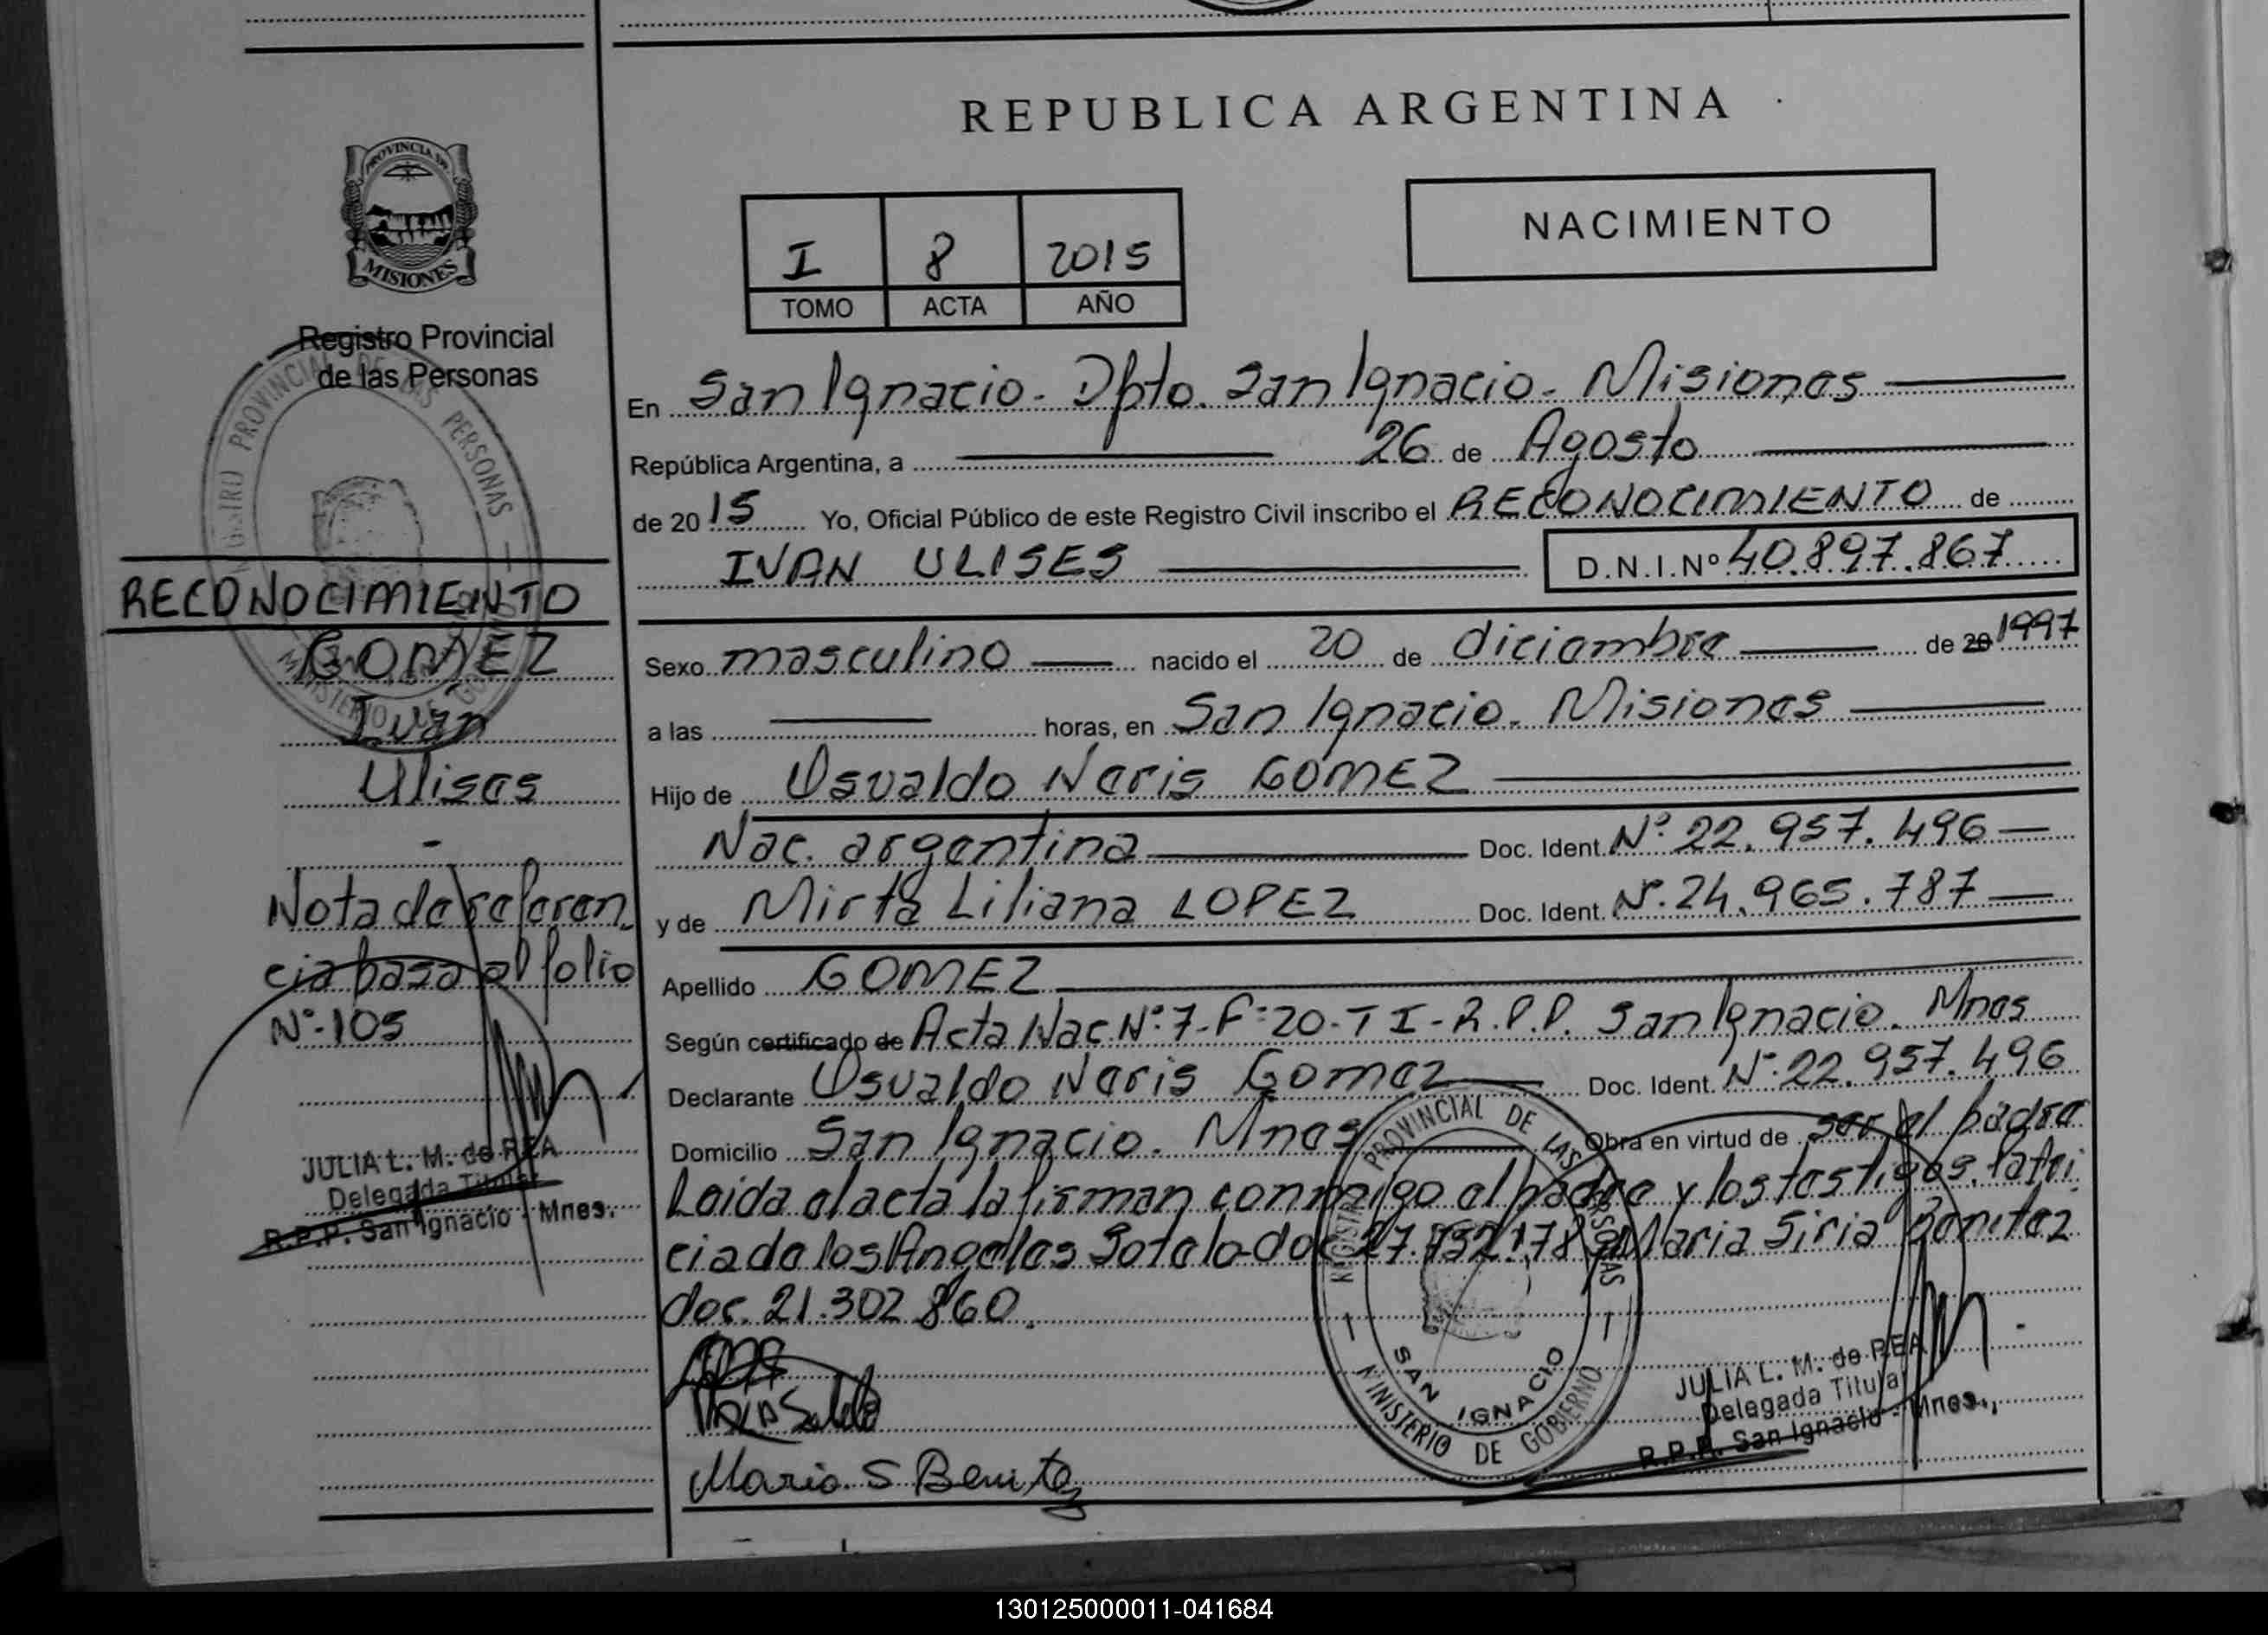 REPUBLICA ARGENTINA
PROVINCIA DE
MISIONES
Registro Provincial
de las Personas
I 8 2015
TOMO ACTA AÑO
NACIMIENTO
En San Ignacio - Dpto. San Ignacio - Misiones
República Argentina, a 26 de Agosto
de 2015 Yo, Oficial Público de este Registro Civil inscribo el RECONOCIMIENTO de
IVAN ULISES D.N.I.Nº 40.897.867
Sexo masculino nacido el 20 de diciembre de 20 1997
a las horas, en San Ignacio - Misiones
Hijo de Osvaldo Neris GOMEZ
Nac. argentina Doc. Ident. Nº 22.957.496
y de Mirta Liliana LOPEZ Doc. Ident. Nº. 24.965.787
Apellido GOMEZ
Según certificado de Acta Nac. Nº 7-Fº 20-T I-R.P.P. San Ignacio. Mnes
Declarante Osvaldo Neris Gomez Doc. Ident. Nº 22.957.496
Domicilio San Ignacio. Mnes Obra en virtud de ser el padre
Leida el acta la firman conmigo el padre y los testigos, Patri
cia de los Angeles Sotelo doc Maria Siria Benitez
doc. 21.302.860.
Maria S Benitez
RECONOCIMIENTO
GOMEZ
Ivan
Ulises
-
Nota de referen
cia pasa al folio
Nº-105
JULIA L. M. de REA
Delegada Titular
R.P.P. San Ignacio - Mnes.
REGISTRO PROVINCIAL DE LAS PERSONAS
MINISTERIO DE GOBIERNO
REGISTRO PROVINCIAL DE LAS PERSONAS
SAN IGNACIO
MINISTERIO DE GOBIERNO
JULIA L. M. de REA
Delegada Titular
R.P.P. San Ignacio - Mnes.
130125000011-041684